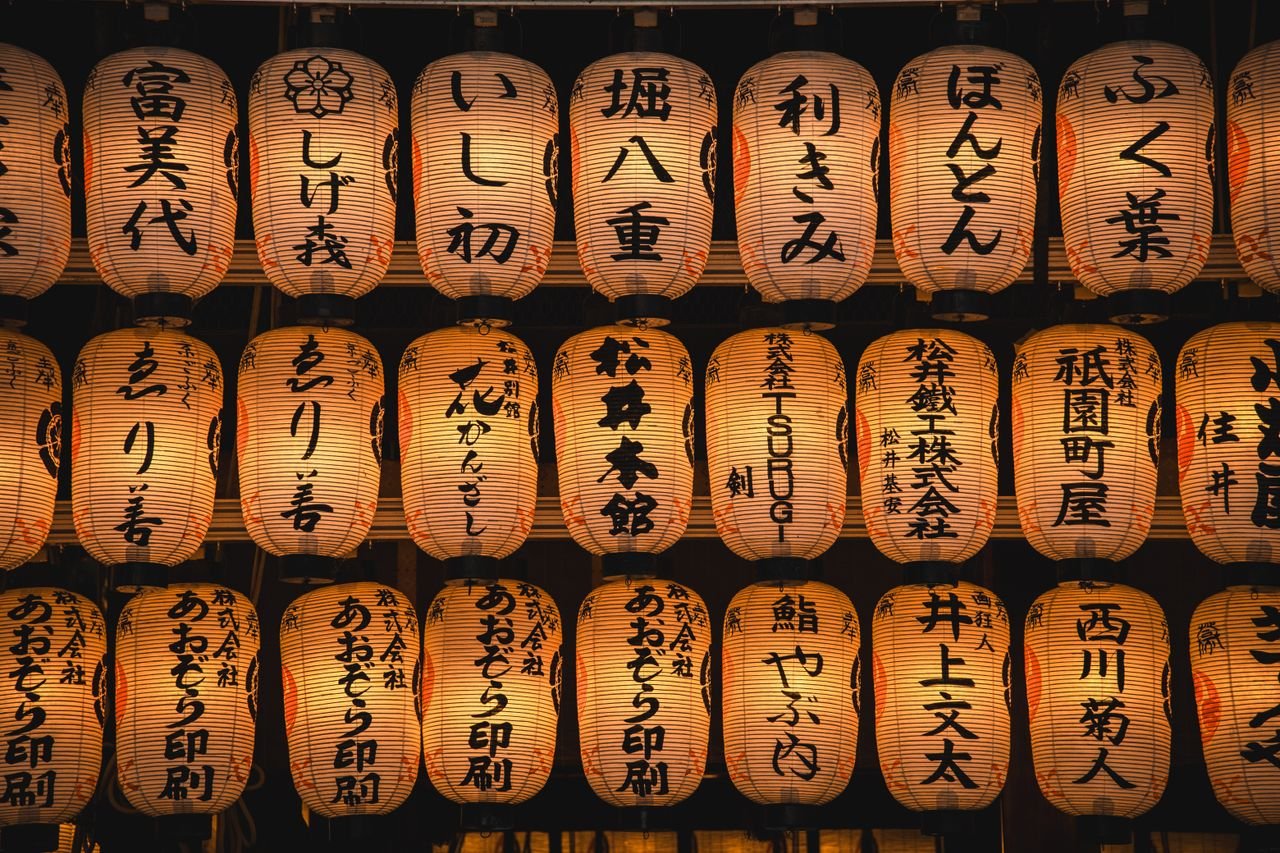 富美代
しげ森
いし初
堀八重
利きみ
ぼんとん
ふく葉
ゑり善
京ごふく
ゑり善
京ごふく
松井別館
花かんざし
松井本館
株式会社
TSURUGI
剣
松井鐵工株式会社
松井基安
株式会社
祇園町屋
住井
株式会社
あおぞら印刷
株式会社
あおぞら印刷
株式会社
あおぞら印刷
株式会社
あおぞら印刷
株式会社
あおぞら印刷
鮨やぶ内
西狂人
井上文太
西川菊人